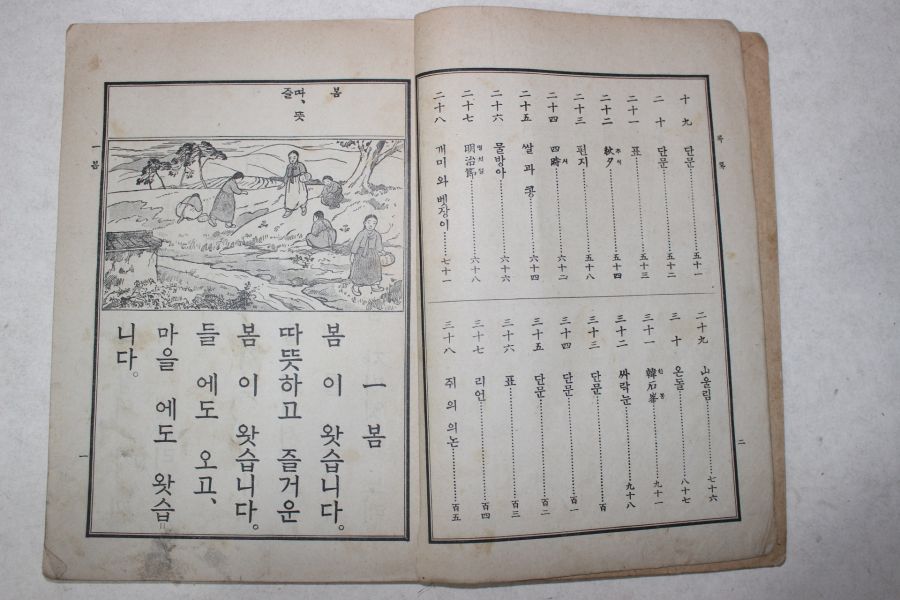 목록
十九 단문……五十一
二十 단문……五十二
二十一 표……五十三
二十二 秋夕……五十四
二十三 편지……五十八
二十四 四時……六十二
二十五 쌀과 콩……六十四
二十六 물방아……六十六
二十七 明治節……六十八
二十八 개미와 베장이……七十一
二十九 山울림……七十六
三十 온돌……八十七
三十一 韓石峯……九十一
三十二 싸락눈……九十八
三十三 단문……百
三十四 단문……百一
三十五 단문……百二
三十六 표……百三
三十七 리언……百四
三十八 쥐의 의논……百五
二
봄
따, 뜻
즐
一 봄
봄이 왓습니다。
따뜻하고 즐거운
봄이 왓습니다。
들에도 오고、
마을에도 왓습
니다。
一 봄
一